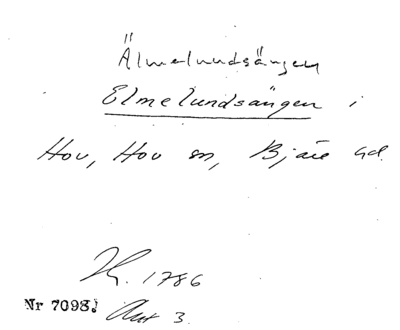 Älmelundsängen
Elmelundsängen i
Hov, Hov sn, Bjäre hd.
1786
Nr 7098. Akt 3.